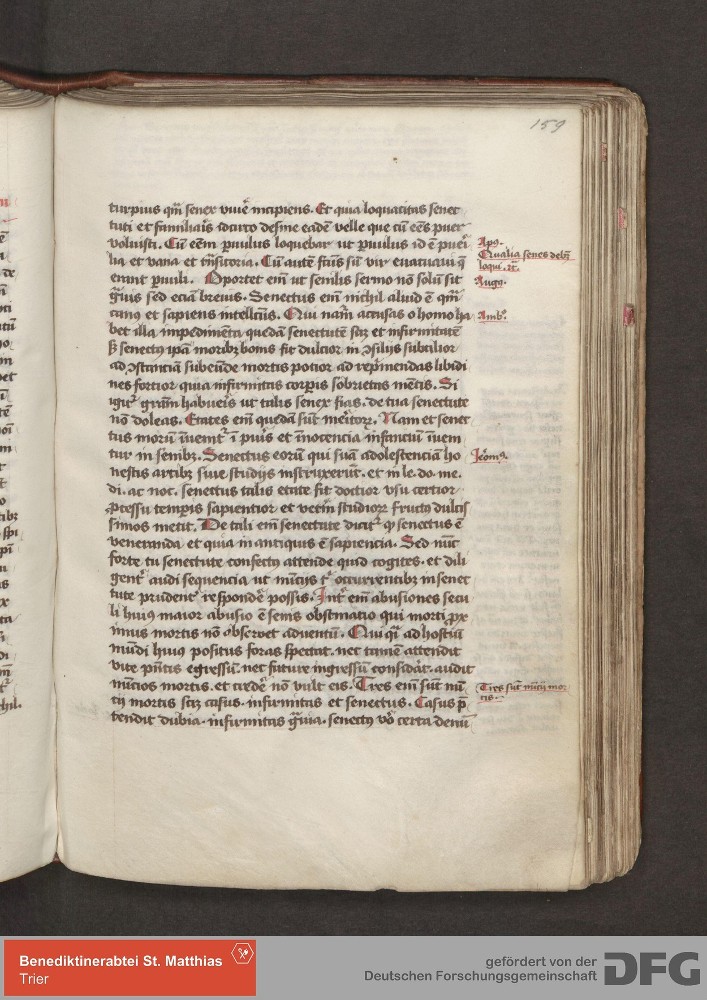 159
turpius qm̄ senex viue᷑ incipiens. Et quia loquacitas senec
tuti et familiar̄is idcirco desine eadē velle que cū ee᷑s puer
voluisti. Cū eēm p̄uulus loquebar ut p̄uulus id ē puei᷑
lia et vana et tn̄sitoria. Cū autē fc̄us sū vir euacuaui q̄
erant p̄uuli. Oportet em̄ ut senilis sermo nō solū sit
gᷓuis sed eciā breuis. Senectus em̄ nichil aliud ē qm̄
canꝰ et sapiens intellcūs. Qui nam̄ accusas o homo ha
bet illa impedimēta quedā senectutē scꝫ et infirmitatē
ꝫ senectꝰ ip̄a moribꝫ bonis fit dulcior in ꝯsilijs subtilior
ad ꝯstanciā subeūde mortis potior ad rep̄mendas libidi
nes fortior quia infirmitas corꝑis sobrietas mētis. Si
igit᷑ gr̄am habueīs ut talis senex fias. de tua senectute
nō doleas. Etates em̄ quedā sūt me᷑itoꝝ. Nam et senec
tus morū īuenit᷑ ī pu᷑is et īnocencia infanciū īuen
itur in senibꝫ. Senectus eorū qui suā adolescenciā ho
nestis artibꝫ siue studijs instruxerūt. et in le. do. me.
di. ac noc. senectus talis etate fit doctior vsu certior
ꝓcessu temꝑis sapientior et vete᷑m studioꝝ fructꝰ dulcis
simos metit. De tali em̄ senectute dicit᷑ ꝙ senectus ē
veneranda et quia in antiquis ē sapiencia. Sed nūc
forte tu senectute confectꝰ attende quid cogites. et dili
gent᷑ audi sequencia ut nūcijs t᷑ occurrentibꝫ in senec
tute prudent᷑ respondē᷑ possis. Int᷑ em̄ abusiones secu
li huiꝰ maior abusio ē senis obstinatio qui morti ꝓx
imus mortis nō obseruet aduentū. Qui qi᷑ ad hostiū
mūdi huiꝰ positus foras spectat. nec tamē attendit
vite pn̄tis egressū. nec future ingressū considat᷑. audit
nūcios mortis. et crede᷑ nō vult eis. Tres em̄ sūt nū
cij mortis scꝫ casus. infirmitas et senectus. Casus p̄
tendit dubia. infirmitas gᷓuia. senectꝰ vō certa denū
Apꝰ.
Qualia senes debēt
loqui. it.
Augꝰ.
Ambꝰ.
Ieronꝰ.
Tres sūt nūcij mor
tis.
Benediktinerabtei St. Matthias
Trier
gefördert von der
Deutschen Forschungsgemeinschaft
DFG